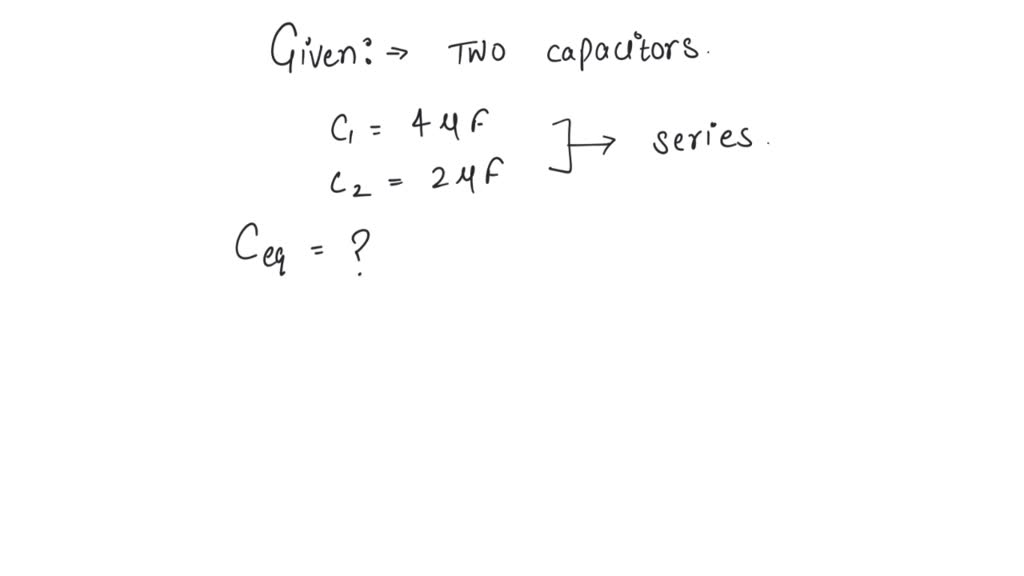 Given:→ TWO capacitors.
C₁ = 4 μF
C₂ = 2 μF ]→ series.
Ceq = ?